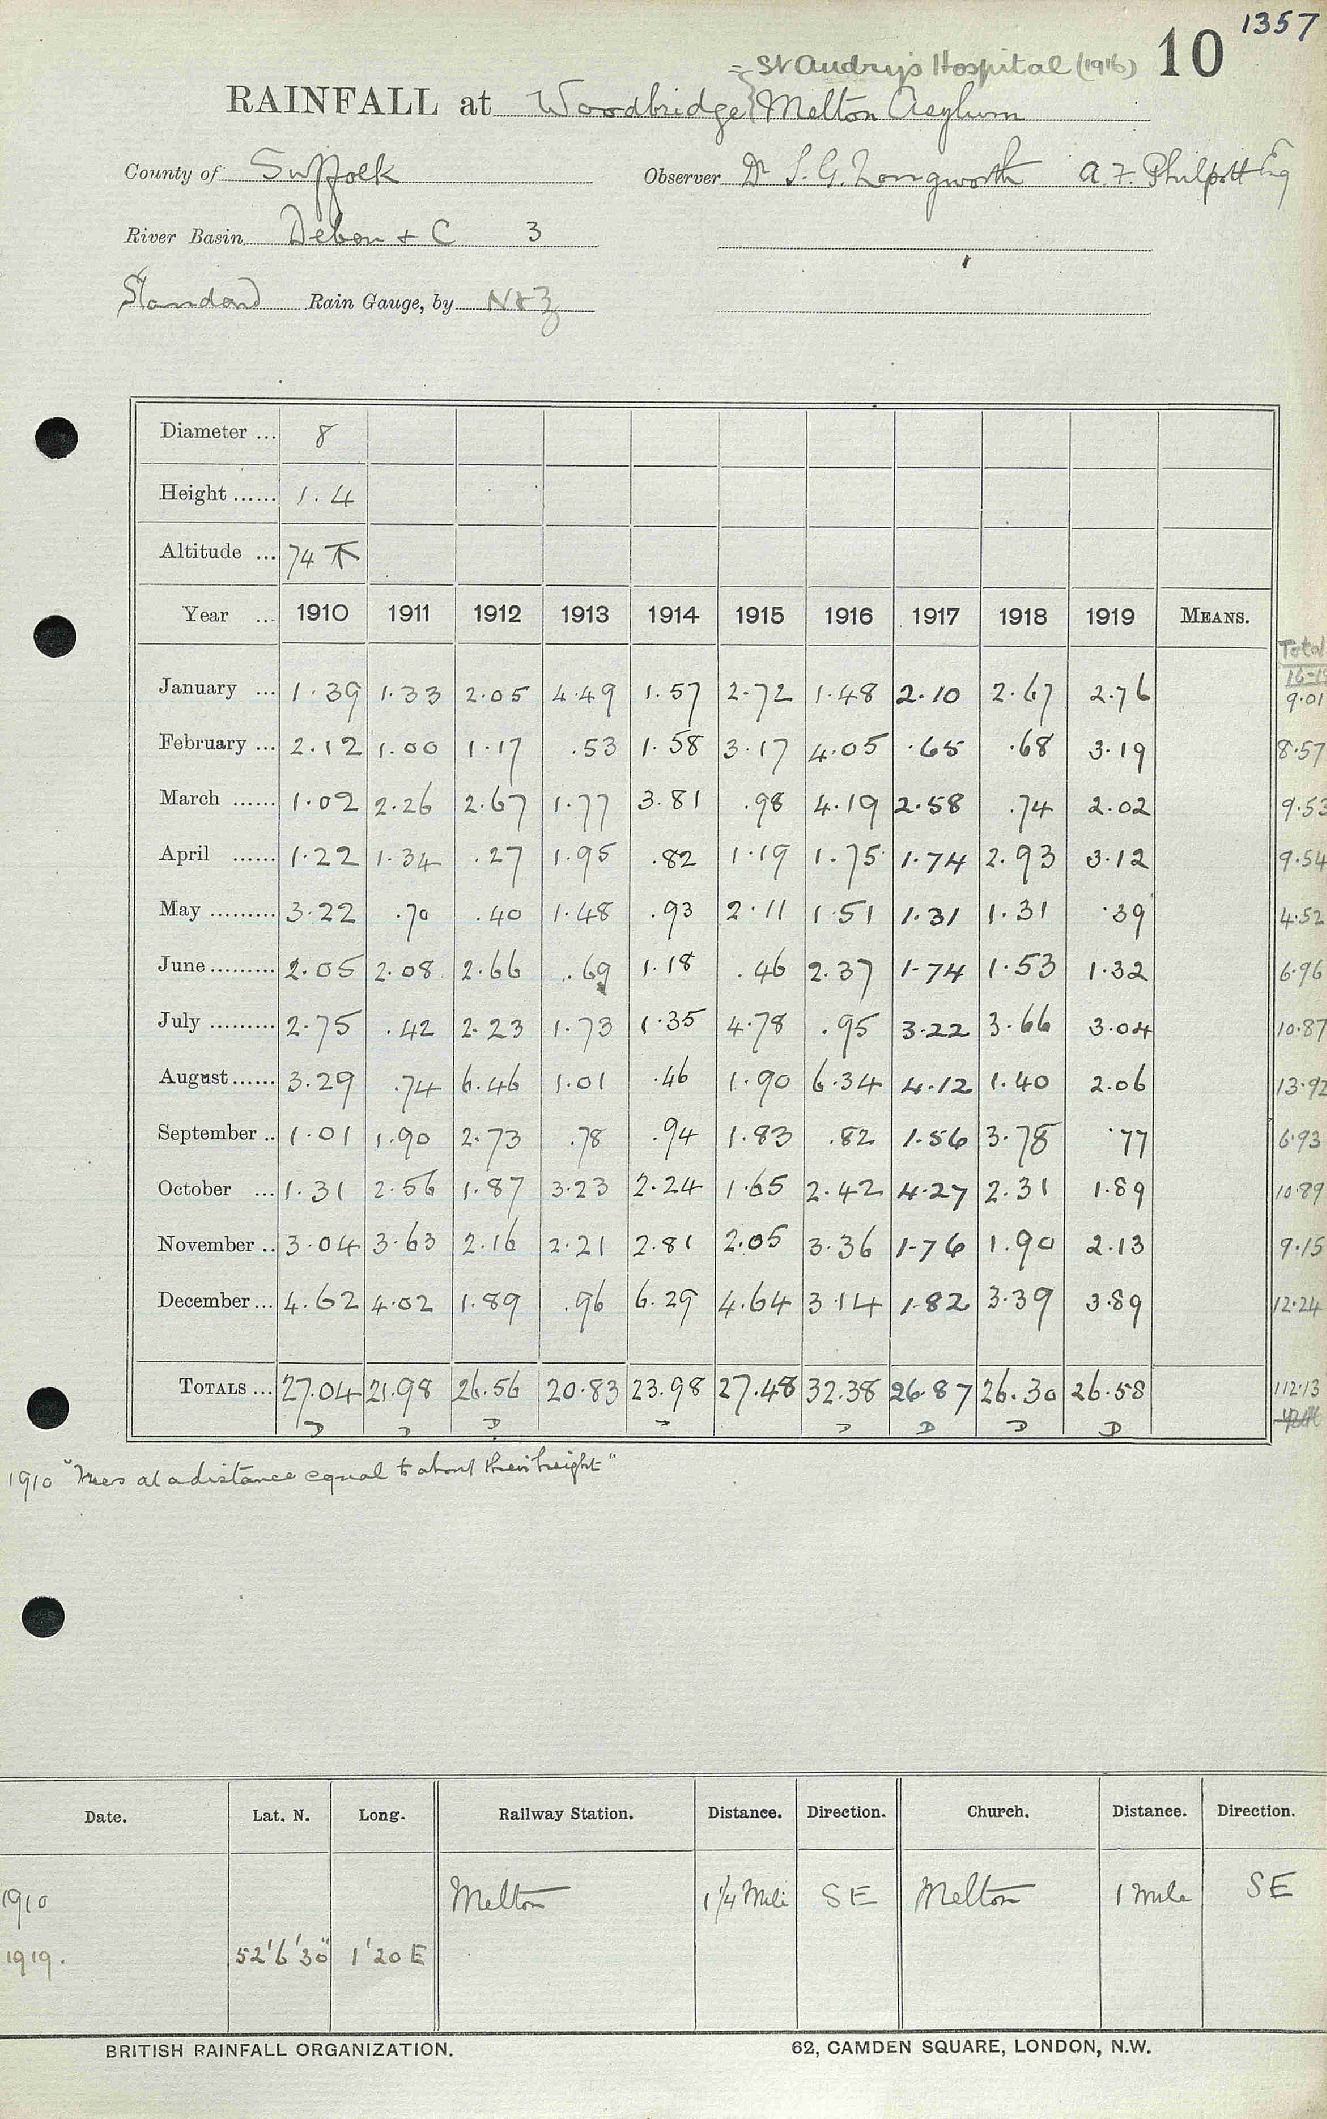 1357
= St Audry's Hospital (1916) 10
RAINFALL at Woodbridge Melton Asylum
County of Suffolk Observer Dr. S. G. Longworth A. F. Philpott Esq
River Basin Deben + C 3
Standard Rain Gauge, by N&Z
Diameter ... 8
Height ...... 1.4
Altitude ... 74
Year ... 1910 1911 1912 1913 1914 1915 1916 1917 1918 1919 MEANS. Total
January ... 1.39 1.33 2.05 4.49 1.57 2.72 1.48 2.10 2.67 2.76 9.01
February ... 2.12 1.00 1.17 .53 1.58 3.17 4.05 .65 .68 3.19 8.57
March ...... 1.02 2.26 2.67 1.77 3.81 .98 4.19 2.58 .74 2.02 9.53
April ...... 1.22 1.34 .27 1.95 .82 1.19 1.75 1.74 2.93 3.12 9.54
May ......... 3.22 .70 .40 1.48 .93 2.11 1.51 1.31 1.31 .39 4.52
June ......... 2.05 2.08 2.66 .69 1.18 .46 2.37 1.74 1.53 1.32 6.96
July ......... 2.75 .42 2.23 1.73 1.35 4.78 .95 3.22 3.66 3.04 10.87
August ...... 3.29 .74 6.46 1.01 .46 1.90 6.34 4.12 1.40 2.06 13.92
September .. 1.01 1.90 2.73 .78 .94 1.83 .82 1.56 3.78 .77 6.93
October ... 1.31 2.56 1.87 3.23 2.24 1.65 2.42 4.27 2.31 1.89 10.89
November .. 3.04 3.63 2.16 2.21 2.81 2.05 3.36 1.76 1.90 2.13 9.15
December ... 4.62 4.02 1.89 .96 6.29 4.64 3.14 1.82 3.39 3.89 12.24
TOTALS ... 27.04 21.98 26.56 20.83 23.98 27.48 32.38 26.87 26.30 26.58 112.13
D D D D D D D D
1910 "Trees at a distance equal to about their height"
Date. Lat. N. Long. Railway Station. Distance. Direction. Church. Distance. Direction.
1910 Melton 1 1/4 Mile SE Melton 1 Mile SE
1919. 52°6'30" 1°20 E
BRITISH RAINFALL ORGANIZATION. 62, CAMDEN SQUARE, LONDON, N.W.